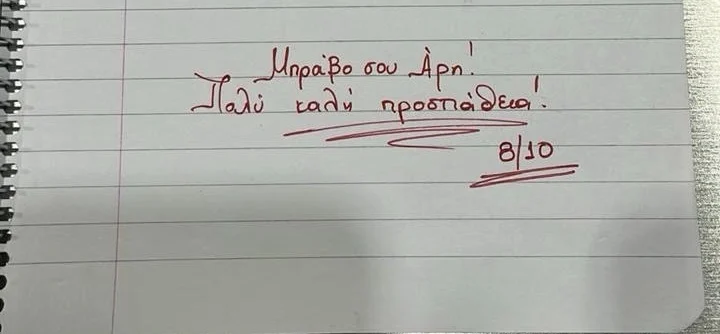 Μπράβο σου Άρη!
Πολύ καλή προσπάθεια!
8/10